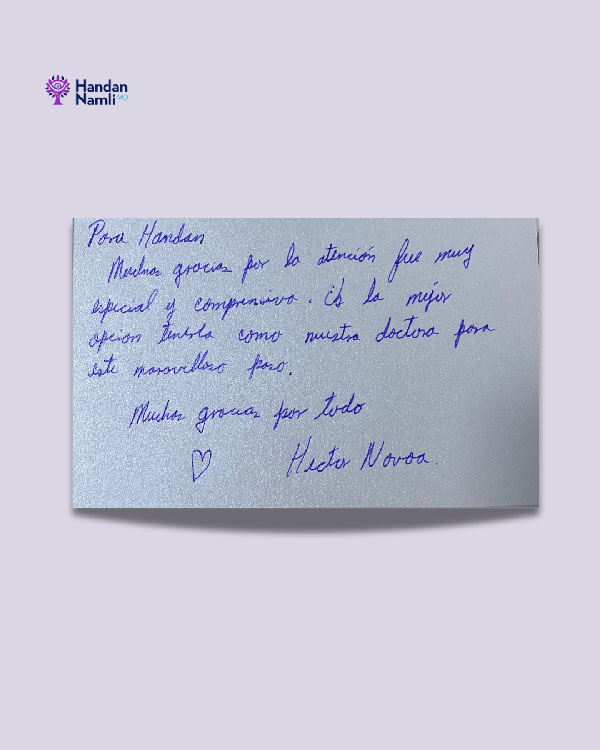 Handan
Namli MD
Para Handan
Muchas gracias por la atención fue muy
especial y comprensiva. Es la mejor
opcion tenerla como nuestra doctora para
este maravilloso paso.
Muchas gracias por todo
Hector Novoa.